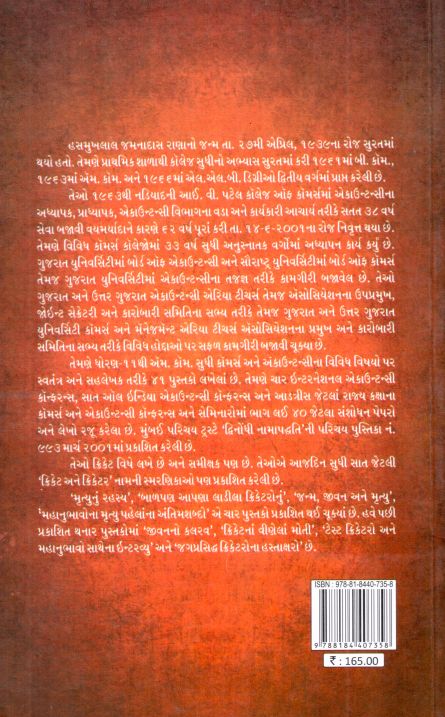 હસમુખલાલ જમનાદાસ રાણાનો જન્મ તા. ૨૭મી એપ્રિલ, ૧૯૩૯ના રોજ સુરતમાં
થયો હતો. તેમણે પ્રાથમિક શાળાથી કૉલેજ સુધીનો અભ્યાસ સુરતમાં કરી ૧૯૬૧માં બી. કૉમ.,
૧૯૬૩માં એમ. કૉમ. અને ૧૯૬૬માં એલ. એલ. બી. ડિગ્રીઓ દ્વિતીય વર્ગમાં પ્રાપ્ત કરેલી છે.
તેઓ ૧૯૬૩થી નડિયાદની આઈ. વી. પટેલ કૉલેજ ઑફ કૉમર્સમાં એકાઉન્ટન્સીના
અધ્યાપક, પ્રાધ્યાપક, એકાઉન્ટન્સી વિભાગના વડા અને કાર્યકારી આચાર્ય તરીકે સતત ૩૮ વર્ષ
સેવા બજાવી વયમર્યાદાને કારણે ૬૨ વર્ષ પૂરાં કરી તા. ૧૪-૬-૨૦૦૧ના રોજ નિવૃત્ત થયા છે.
તેમણે વિવિધ કૉમર્સ કૉલેજોમાં ૩૩ વર્ષ સુધી અનુસ્નાતક વર્ગોમાં અધ્યાપન કાર્ય કર્યું છે.
ગુજરાત યુનિવર્સિટીમાં બોર્ડ ઑફ એકાઉન્ટન્સી અને સૌરાષ્ટ્ર યુનિવર્સિટીમાં બોર્ડ ઑફ કૉમર્સ
તેમજ ગુજરાત યુનિવર્સિટીમાં એકાઉન્ટન્સીના તજજ્ઞ તરીકે કામગીરી બજાવેલ છે. તેઓ
ગુજરાત અને ઉત્તર ગુજરાત એકાઉન્ટન્સી એરિયા ટીચર્સ તેમજ અૅસોસિયેશનના ઉપપ્રમુખ,
જોઇન્ટ સેક્રેટરી અને કારોબારી સમિતિના સભ્ય તરીકે તેમજ ગુજરાત અને ઉત્તર ગુજરાત
યુનિવર્સિટી કૉમર્સ અને મૅનેજમેન્ટ એરિયા ટીચર્સ અૅસોસિયેશનના પ્રમુખ અને કારોબારી
સમિતિના સભ્ય તરીકે વિવિધ હોદ્દાઓ પર સફળ કામગીરી બજાવી ચૂક્યા છે.
તેમણે ધોરણ-૧૧થી એમ. કૉમ. સુધી કૉમર્સ અને એકાઉન્ટન્સીના વિવિધ વિષયો પર
સ્વતંત્ર અને સહલેખક તરીકે ૪૧ પુસ્તકો લખેલાં છે. તેમણે ચાર ઇન્ટરનેશનલ એકાઉન્ટન્સી
કૉન્ફરન્સ, સાત ઓલ ઇન્ડિયા એકાઉન્ટન્સી કૉન્ફરન્સ અને આડત્રીસ જેટલાં રાજ્ય કક્ષાના
કૉમર્સ અને એકાઉન્ટન્સી કૉન્ફરન્સ અને સેમિનારોમાં ભાગ લઈ ૪૦ જેટલા સંશોધન પેપરો
અને લેખો રજૂ કરેલા છે. મુંબઈ પરિચય ટ્રસ્ટે 'દ્વિનોંધી નામાપદ્ધતિ'ની પરિચય પુસ્તિકા નં.
૯૯૩ માર્ચ ૨૦૦૧માં પ્રકાશિત કરેલી છે.
તેઓ ક્રિકેટ વિષે લખે છે અને સમીક્ષક પણ છે. તેઓએ આજદિન સુધી સાત જેટલી
'ક્રિકેટ અને ક્રિકેટર' નામની સ્મરણિકાઓ પણ પ્રકાશિત કરી છે.
'મૃત્યુનું રહસ્ય', 'બાળપણ આપણા લાડીલા ક્રિકેટરોનું', 'જન્મ, જીવન અને મૃત્યુ',
'મહાનુભાવોના મૃત્યુ પહેલાંના અંતિમશબ્દો' એ ચાર પુસ્તકો પ્રકાશિત થઈ ચૂક્યાં છે. હવે પછી
પ્રકાશિત થનાર પુસ્તકોમાં 'જીવનનો કલરવ', 'ક્રિકેટનાં વીણેલાં મોતી', 'ટેસ્ટ ક્રિકેટરો અને
મહાનુભાવો સાથેના ઇન્ટરવ્યુ' અને 'જગપ્રસિદ્ધ ક્રિકેટરોના હસ્તાક્ષરો' છે.
ISBN : 978-81-8440-735-8
9 788184 407358
₹ : 165.00